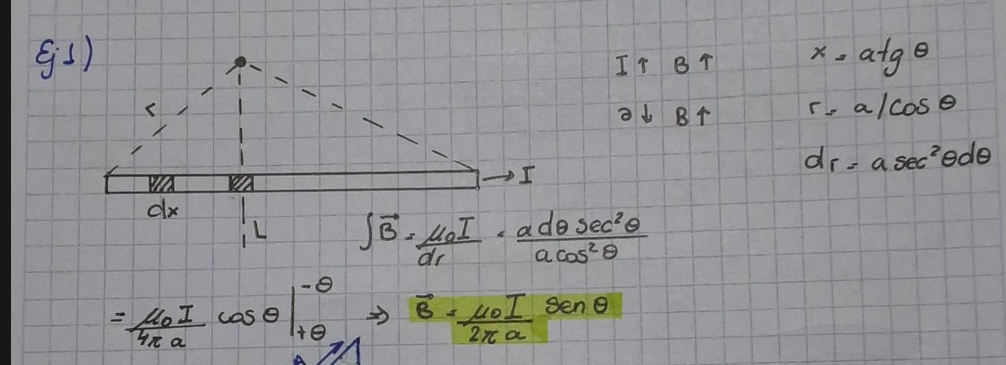 Ej 1)
I↑ B↑
x = a tg θ
a↓ B↑
r = a / cos θ
dr = a sec²θ dθ
r
→ I
dx
L
∫B⃗ = μ₀I/dr · a dθ sec²θ / a cos²θ
= μ₀I/4πa cos θ |₊θ⁻θ ⇒ B⃗ = μ₀I/2πa sen θ